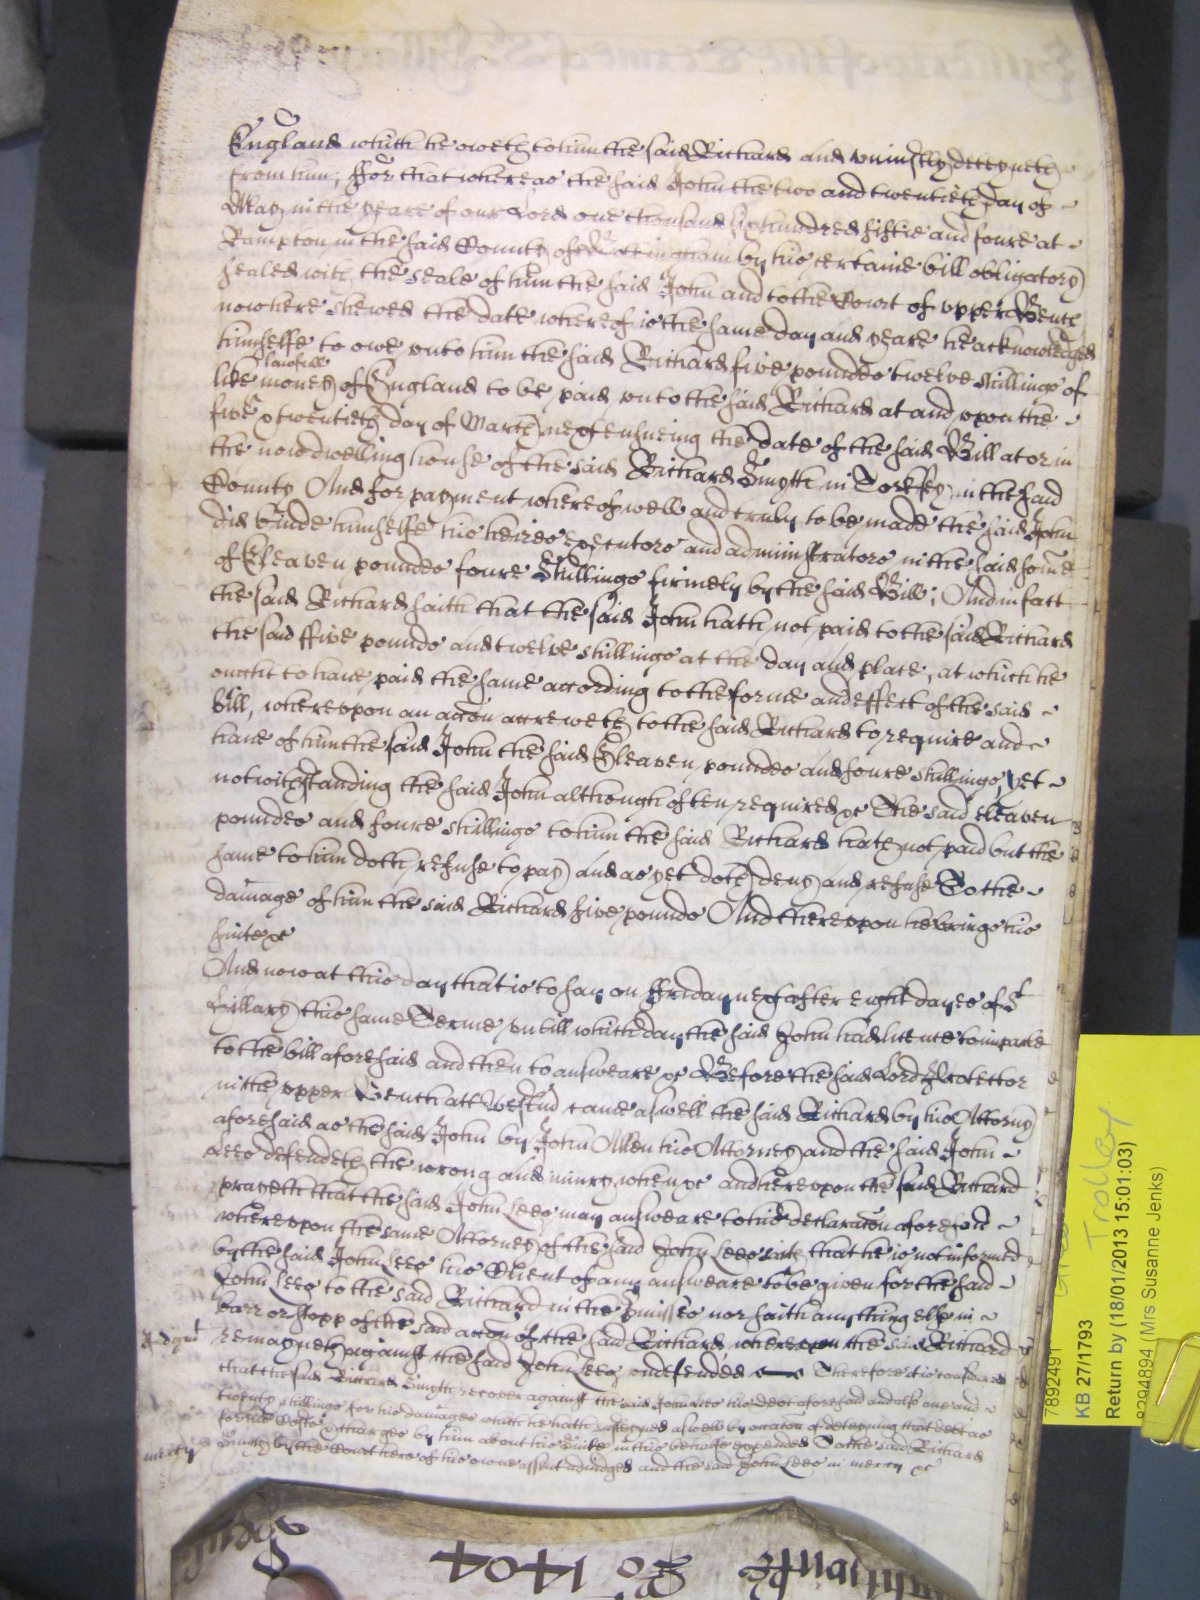 England which he oweth to him the said Richard and uniustly deteyneth
from him; ffor that whereas the said John the two and twentieth day of
May in the yeare of our Lord one thousand six hundred fiftie and foure at
Rampton in the said County of Nottingham by his certaine bill obligatory
sealed with the seale of him the said John and to the Court of upper Bench
now here shewed the date whereof is the same day and yeare he acknowledged
himselfe to owe unto him the said Richard five poundes twelve shillings of
like lawfull money of England to be paid unto the said Richard at and upon the
five & twentieth day of March next ensueing the date of the said Bill at or in
the now dwelling house of the said Richard Smyth in Torksey in the said
County And for payment whereof well and truly to be made the said John
did binde himselfe his heires executors and administrators in the said some
of Eleaven poundes foure Shillings firmely by the said Bill; And in fact
the said Richard saith that the said John hath not paid to the said Richard
the said ffive pounds and twelve shillings at the day and place, at which he
ought to have paid the same according to the forme and effect of the said
bill, whereupon an accon accreweth to the said Richard to require and
have of him the said John the said Eleaven poundes and foure shillings, yet
notwithstanding the said John although often required &c The said eleaven
poundes and foure shillings to him the said Richard hath not paid but the
same to him doth refuse to pay and as yet doth deny and refuse To the
damage of him the said Richard five pounds And thereupon he brings his
suite &c
And now at this day that is to say on ffriday next after eight dayes of St
Hillary this same Terme, untill which day the said John had licence to imparle
to the bill aforesaid and then to answeare &c Before the said Lord Protector
in the upper Bench att Westm̃ came aswell the said Richard by his Attorny
aforesaid as the said John by John Allen his Attorney and the said John
Lees defendeth the wrong and iniury when &c and hereupon the said Richard
prayeth that the said John Lees may answeare to his declaracon aforesaid
whereupon the same Attorney of the said John Lees saith that he is not informed
by the said John Lees his Client of any answeare to be given for the said
John Lees to the said Richard in the p̱misses nor saith any thing else in
barr or stopp of the said accon of the said Richard whereupon the said Richard
remayneth against the said John Lees undefended Therefore it is considered
that the said Richard Smyth recover against the said John Lees his debt aforesaid and also one and
twenty shillings for his damages which he hath susteyned aswell by occasion of deteyning that debt as
for his Costs & Charges by him about his Suite in this behalfe expended To the said Richard
mercy Smyth by the Court here of his owne assent adiudged and the said John Lees in mercy &c
Ro 1404
7892491
KB 27/1793
Return by (18/01/2013 15:01:03)
8294894 (Mrs Susanne Jenks)
Trolley